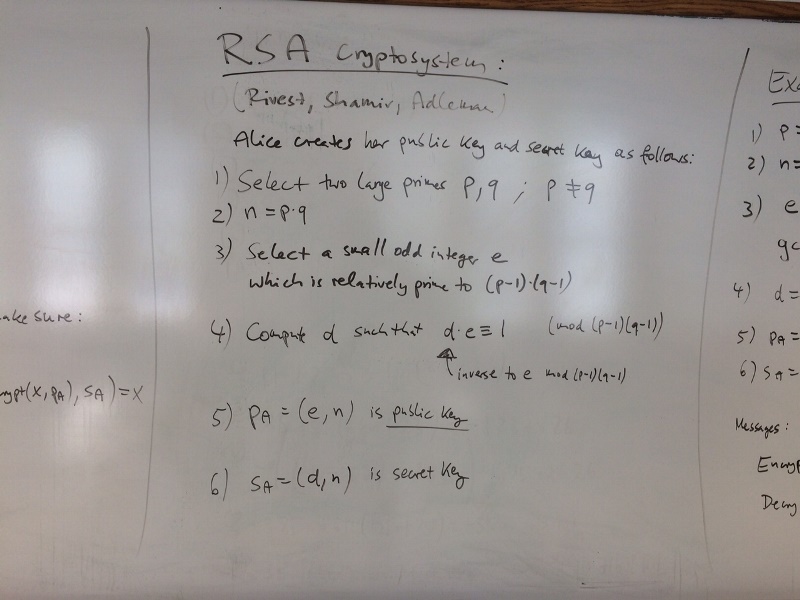 ake sure:
rypt(x, PA), SA) = x
RSA Cryptosystem:
(Rivest, Shamir, Adleman)
Alice creates her public key and secret key as follows:
1) Select two large primes p, q ; p ≠ q
2) n = p·q
3) Select a small odd integer e
which is relatively prime to (p-1)·(q-1)
4) Compute d such that d·e ≡ 1 (mod (p-1)(q-1))
inverse to e mod (p-1)(q-1)
5) PA = (e, n) is public key
6) SA = (d, n) is secret key
Exa
1) p =
2) n =
3) e
gc
4) d =
5) PA =
6) SA =
Messages:
Encryp
Decry